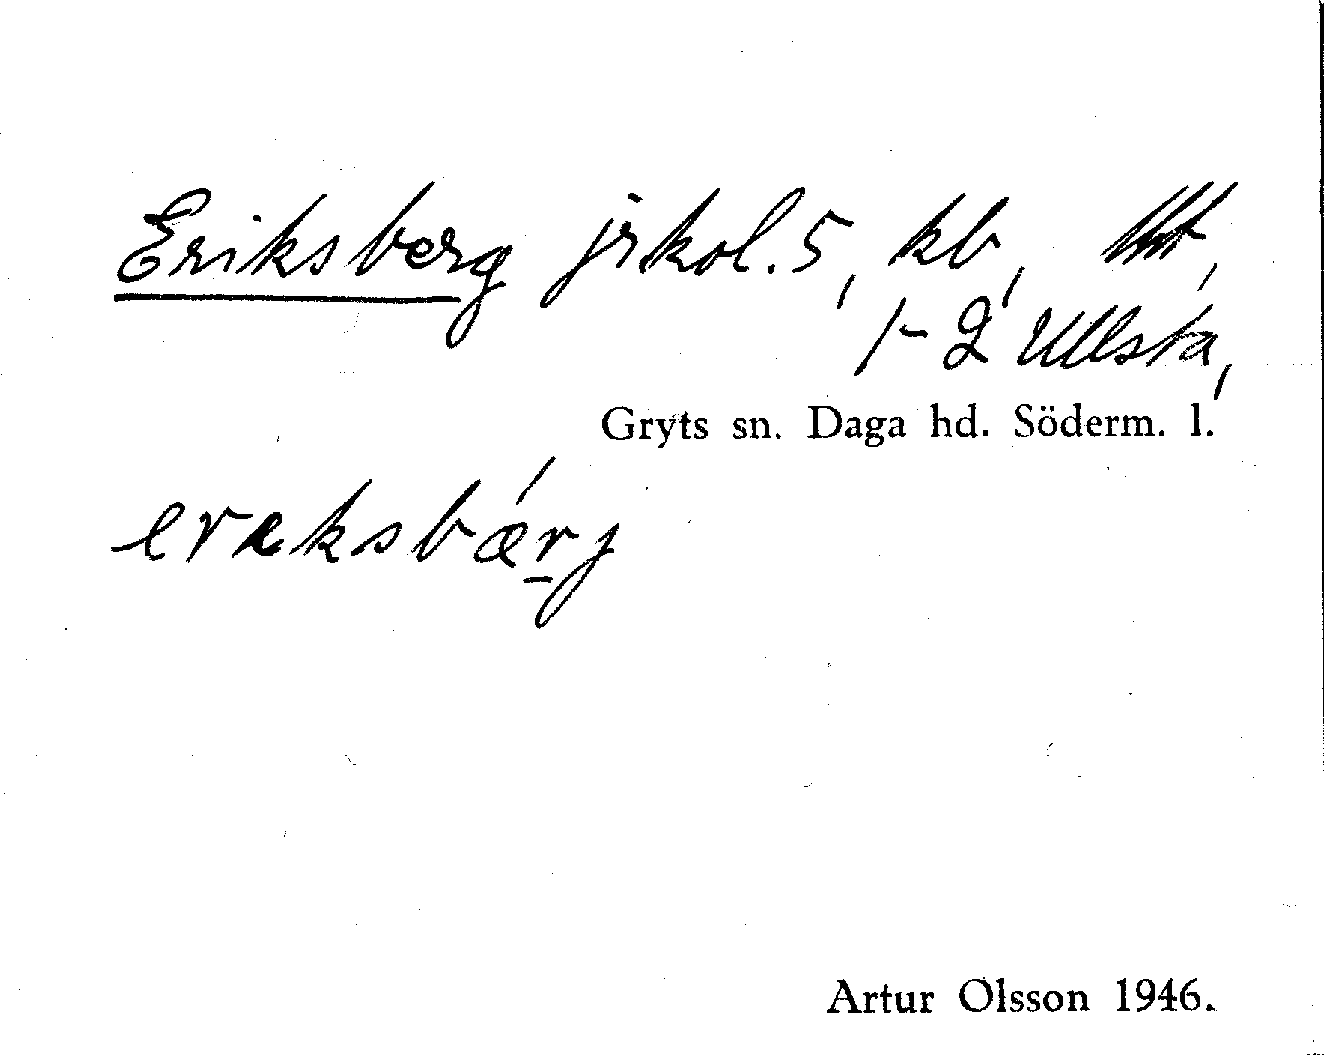 Eriksberg jrkol. 5, kb,
/- 2 Ullsta,
Gryts sn. Daga hd. Söderm. l.
ereksbærj
Artur Olsson 1946.